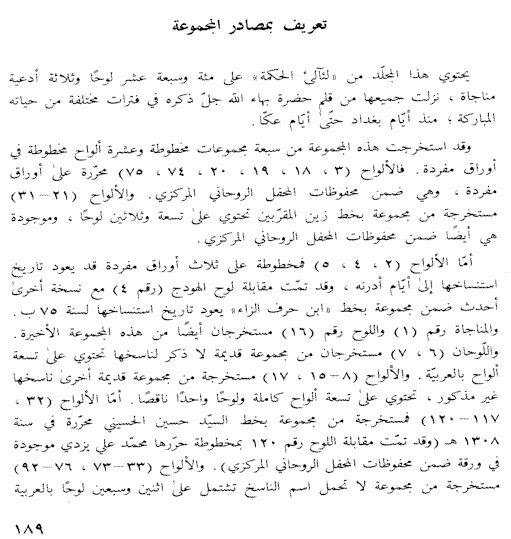 تعريف بمصادر المجموعة
يحتوي هذا المجلّد من «لئآلئ الحكمة» على مئة وسبعة عشر لوحًا وثلاثة أدعية
مناجاة ، نزلت جميعها من قلم حضرة بهاء اللّه جلّ ذكره في فترات مختلفة من حياته
المباركة ؛ منذ أيّام بغداد حتّىٰ أيّام عكّا.
وقد استخرجت هذه المجموعة من سبعة مجموعات مخطوطة وعشرة ألواح مخطوطة في
أوراق مفردة. فالألواح (٣ ، ١٨ ، ١٩ ، ٢٠ ، ٧٤ ، ٧٥) محرّرة علىٰ أوراق
مفردة ، وهي ضمن محفوظات المحفل الروحاني المركزي. والألواح (٢١–٣١)
مستخرجة من مجموعة بخط زين المقرّبين تحتوي علىٰ تسعة وثلاثين لوحًا ، وموجودة
هي أيضًا ضمن محفوظات المحفل الروحاني المركزي.
أمّا الألواح (٢ ، ٤ ، ٥) فمخطوطة على ثلاث أوراق مفردة قد يعود تاريخ
استنساخها إلىٰ أيّام أدرنه ، وقد تمّت مقابلة لوح الهودج (رقم ٤) مع نسخة أخرىٰ
أحدث ضمن مجموعة بخط «ابن حرف الزاء» يعود تاريخ استنساخها لسنة ٧٥ ب.
والمناجاة رقم (١) واللوح رقم (١٦) مستخرجان أيضًا من هذه المجموعة الأخيرة.
واللّوحان (٦ ، ٧) مستخرجان من مجموعة قديمة لا ذكر لناسخها تحتوي علىٰ تسعة
ألواح بالعربيّة. والألواح (٨–١٥ ، ١٧) مستخرجة من مجموعة قديمة أخرىٰ ناسخها
غير مذكور ، تحتوي علىٰ تسعة ألواح كاملة ولوحًا واحدًا ناقصًا. أمّا الألواح (٣٢ ،
١١٧–١٢٠) فمستخرجة من مجموعة بخط السيّد حسين الحسيني محرّرة في سنة
١٣٠٨ هـ (وقد تمّت مقابلة اللوح رقم ١٢٠ بمخطوطة حرّرها محمّد علي يزدي موجودة
في ورقة ضمن محفوظات المحفل الروحاني المركزي). والألواح (٣٣–٧٣ ، ٧٦–٩٢)
مستخرجة من مجموعة لا تحمل اسم الناسخ تشتمل علىٰ اثنين وسبعين لوحًا بالعربية
١٨٩